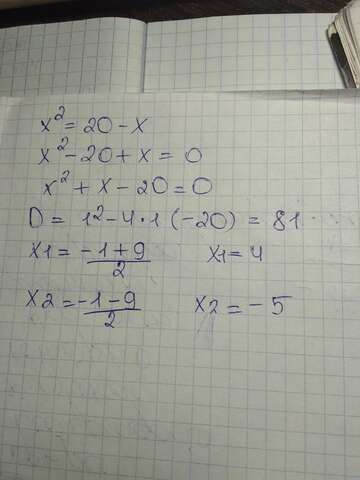 x² = 20 - x
x² - 20 + x = 0
x² + x - 20 = 0
D = 1² - 4 · 1 (-20) = 81
x1 = (-1 + 9)/2 x1 = 4
x2 = (-1 - 9)/2 x2 = -5